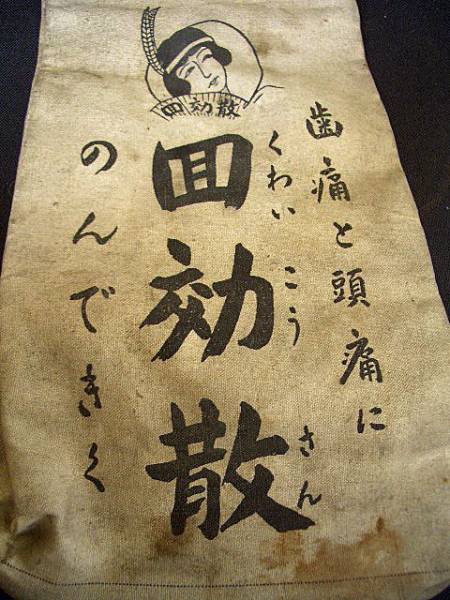 回効散
歯痛と頭痛に
くわいこうさん
回効散
のんできく